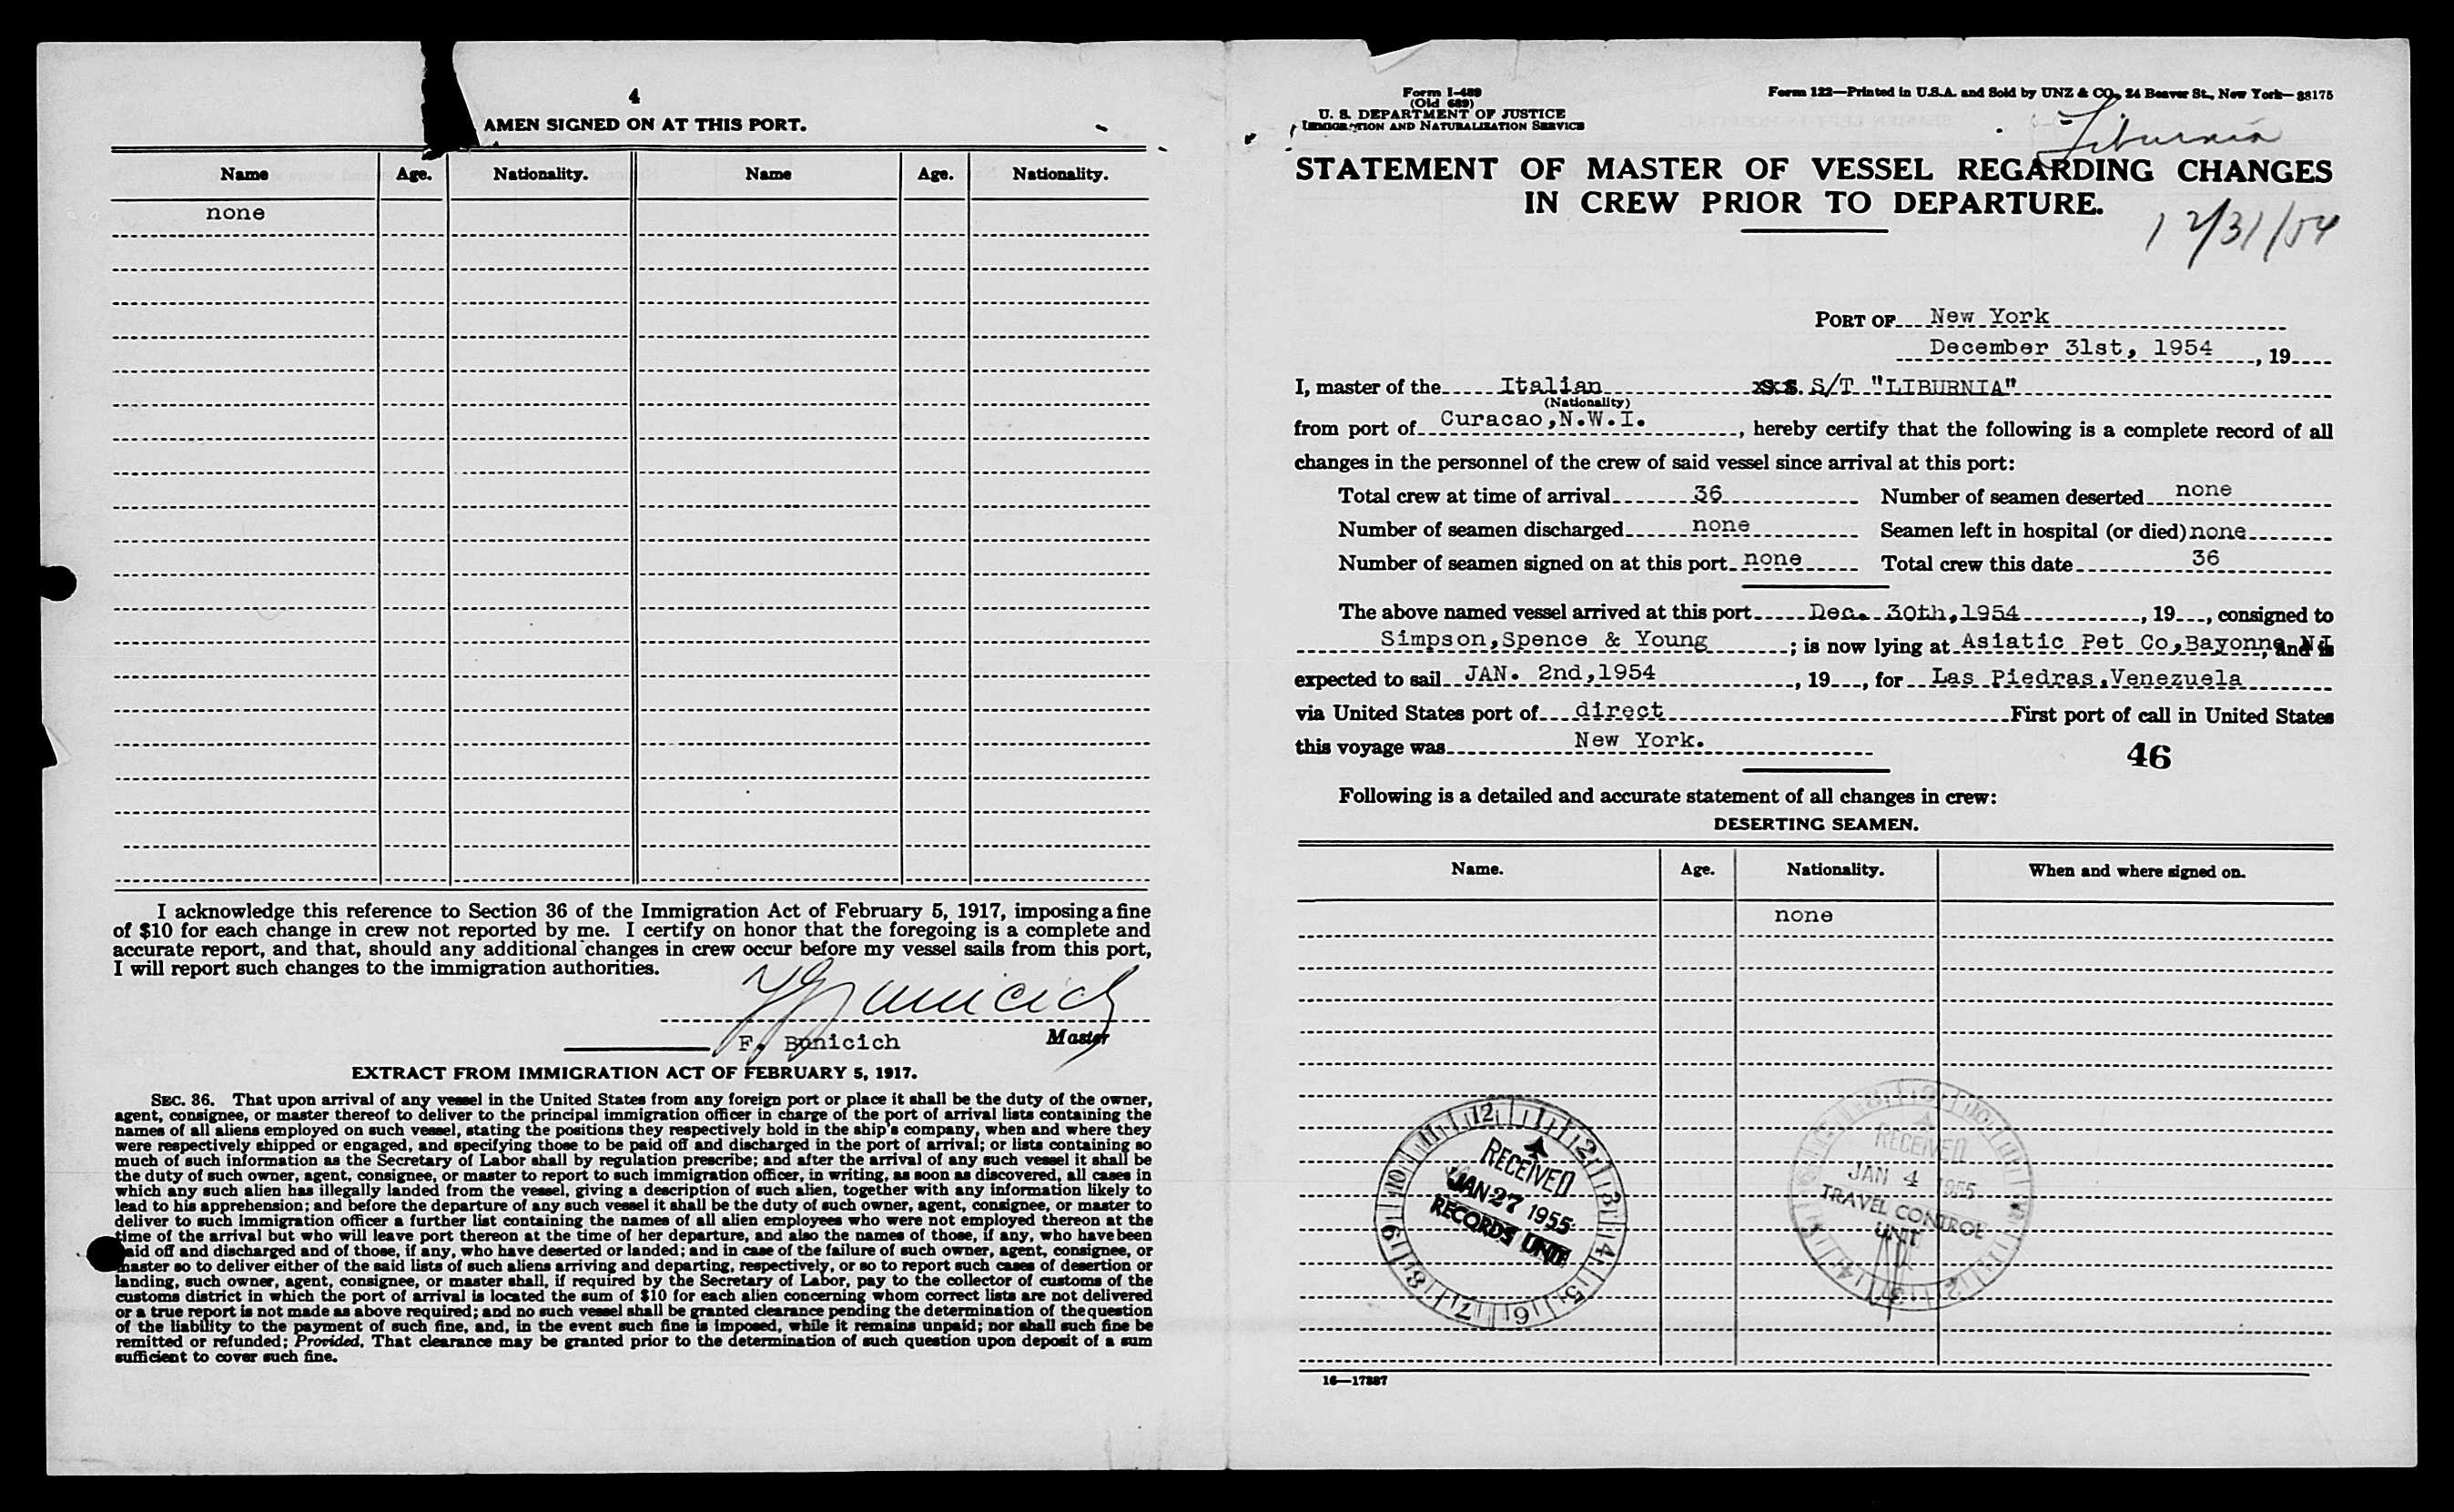 4
AMEN SIGNED ON AT THIS PORT.
Name Age. Nationality. Name Age. Nationality.
none
I acknowledge this reference to Section 36 of the Immigration Act of February 5, 1917, imposing a fine
of $10 for each change in crew not reported by me. I certify on honor that the foregoing is a complete and
accurate report, and that, should any additional changes in crew occur before my vessel sails from this port,
I will report such changes to the immigration authorities.
F. Bunicich Master
EXTRACT FROM IMMIGRATION ACT OF FEBRUARY 5, 1917.
SEC. 36. That upon arrival of any vessel in the United States from any foreign port or place it shall be the duty of the owner,
agent, consignee, or master thereof to deliver to the principal immigration officer in charge of the port of arrival lists containing the
names of all aliens employed on such vessel, stating the positions they respectively hold in the ship's company, when and where they
were respectively shipped or engaged, and specifying those to be paid off and discharged in the port of arrival; or lists containing so
much of such information as the Secretary of Labor shall by regulation prescribe; and after the arrival of any such vessel it shall be
the duty of such owner, agent, consignee, or master to report to such immigration officer, in writing, as soon as discovered, all cases in
which any such alien has illegally landed from the vessel, giving a description of such alien, together with any information likely to
lead to his apprehension; and before the departure of any such vessel it shall be the duty of such owner, agent, consignee, or master to
deliver to such immigration officer a further list containing the names of all alien employees who were not employed thereon at the
time of the arrival but who will leave port thereon at the time of her departure, and also the names of those, if any, who have been
paid off and discharged and of those, if any, who have deserted or landed; and in case of the failure of such owner, agent, consignee, or
master so to deliver either of the said lists of such aliens arriving and departing, respectively, or so to report such cases of desertion or
landing, such owner, agent, consignee, or master shall, if required by the Secretary of Labor, pay to the collector of customs of the
customs district in which the port of arrival is located the sum of $10 for each alien concerning whom correct lists are not delivered
or a true report is not made as above required; and no such vessel shall be granted clearance pending the determination of the question
of the liability to the payment of such fine, and, in the event such fine is imposed, while it remains unpaid; nor shall such fine be
remitted or refunded; Provided, That clearance may be granted prior to the determination of such question upon deposit of a sum
sufficient to cover such fine.
Form I-489
(Old 689)
U. S. DEPARTMENT OF JUSTICE
IMMIGRATION AND NATURALIZATION SERVICE
Form 122—Printed in U.S.A. and Sold by UNZ & CO., 24 Beaver St., New York—38175
Liburnia
STATEMENT OF MASTER OF VESSEL REGARDING CHANGES
IN CREW PRIOR TO DEPARTURE.
12/31/54
PORT OF New York
December 31st, 1954, 19
I, master of the Italian S.S. S/T "LIBURNIA"
(Nationality)
from port of Curacao,N.W.I., hereby certify that the following is a complete record of all
changes in the personnel of the crew of said vessel since arrival at this port:
Total crew at time of arrival 36 Number of seamen deserted none
Number of seamen discharged none Seamen left in hospital (or died) none
Number of seamen signed on at this port none Total crew this date 36
The above named vessel arrived at this port Dec. 30th,1954, 19, consigned to
Simpson,Spence & Young; is now lying at Asiatic Pet Co,Bayonne NJ, and is
expected to sail JAN. 2nd,1954, 19, for Las Piedras,Venezuela
via United States port of direct First port of call in United States
this voyage was New York.
46
Following is a detailed and accurate statement of all changes in crew:
DESERTING SEAMEN.
Name. Age. Nationality. When and where signed on.
none
12 1 2 3 4 5 6 7 8 9 10 11
RECEIVED
JAN 27 1955
RECORDS UNIT
RECEIVED
JAN 4 1955
TRAVEL CONTROL
UNIT
16—17887